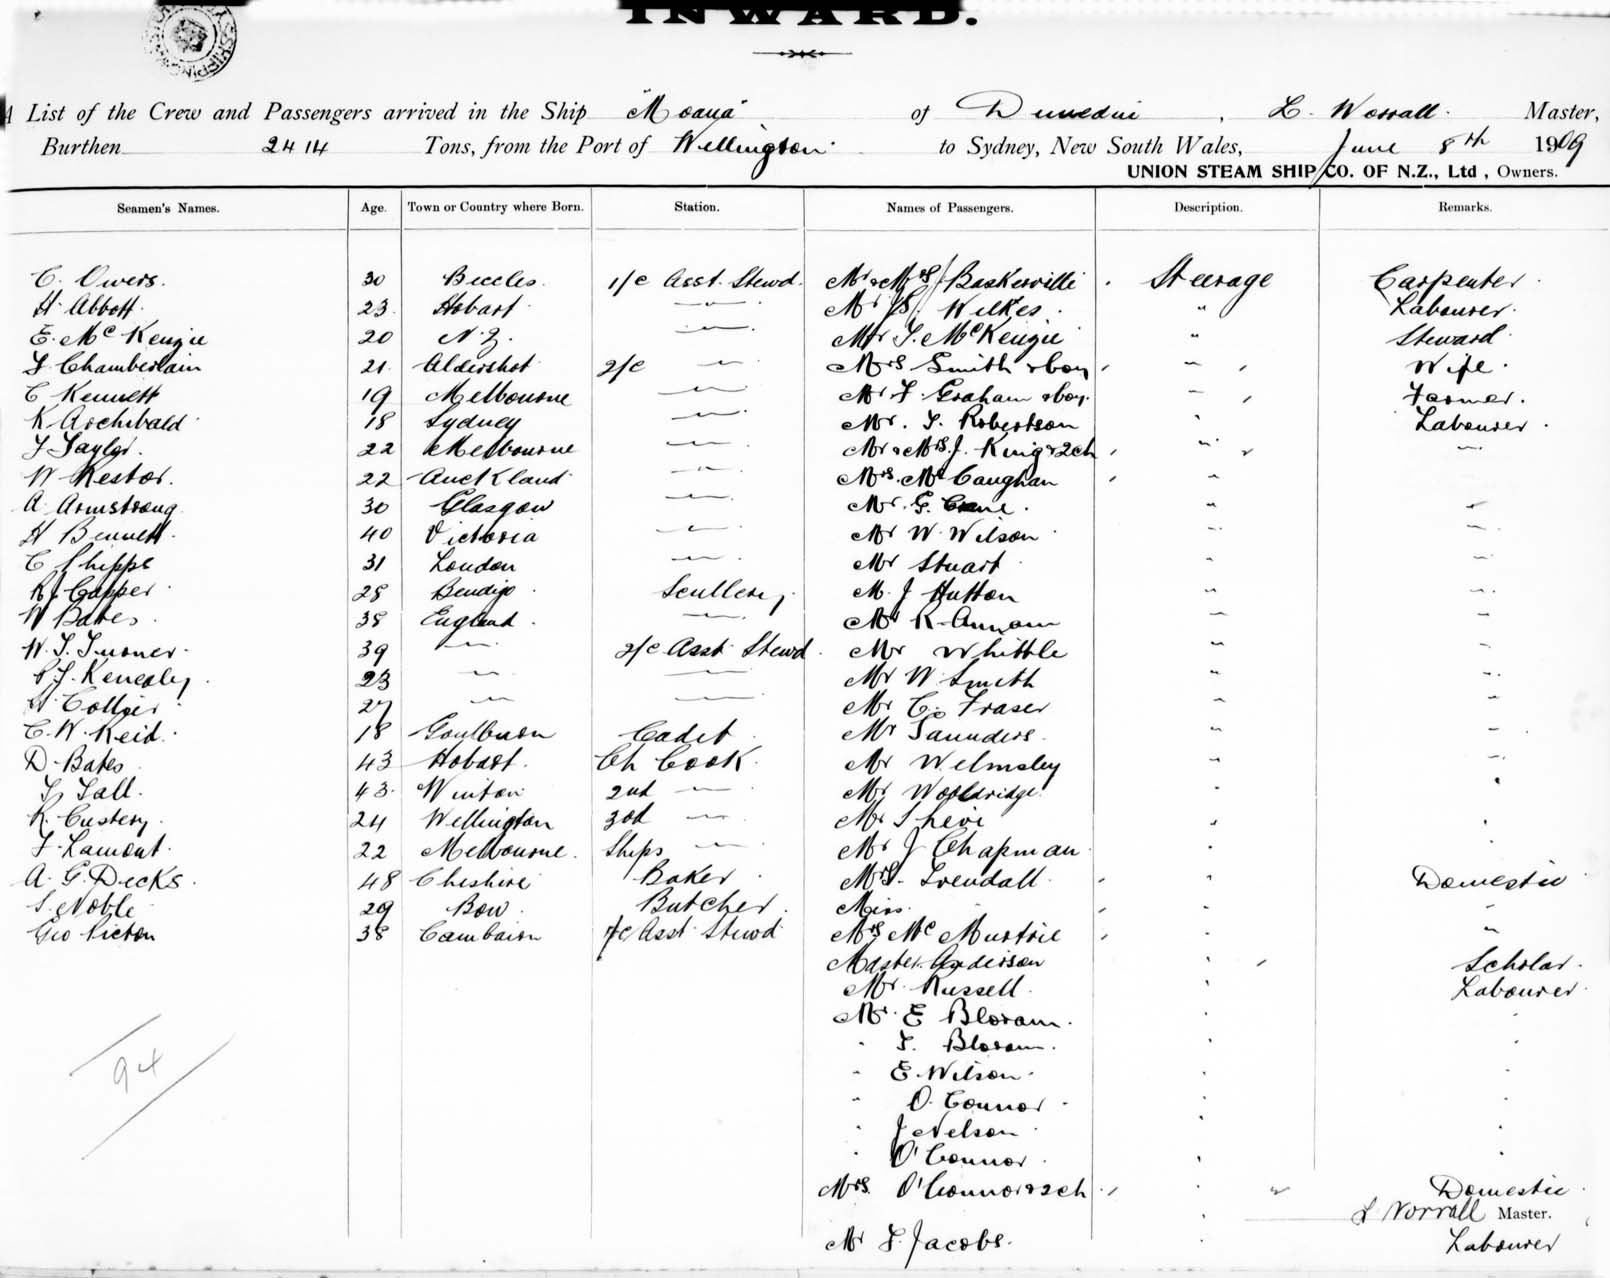 INWARD.
A List of the Crew and Passengers arrived in the Ship "Moana" of Dunedin, L. Worrall. Master,
Burthen 2414 Tons, from the Port of Wellington to Sydney, New South Wales, June 8th 1909
UNION STEAM SHIP CO. OF N.Z., Ltd, Owners.
Seamen's Names. Age. Town or Country where Born. Station. Names of Passengers. Description. Remarks.
C. Owers. 30 Beccles. 1/c Asst. Stewd. Mr & Mrs J Baskerville Steerage Carpenter
H. Abbott. 23 Hobart — Mr Wilkes. " Labourer.
E. McKenzie 20 N.Z. — Mr T. McKenzie " Steward
F Chamberlain 21 Aldershot 2/c — Mrs Smith & boy " Wife.
C Kennett 19 Melbourne — Mr F. Graham & boy. " Farmer.
K Archibald 18 Sydney — Mr. T. Robertson " Labourer.
F Taylor. 22 Melbourne — Mr & Mrs J. King & 2 ch " "
W Restor. 22 Auckland — Mrs. McCaughan "
A. Armstrong 30 Glasgow — Mr. G. Cane. " "
H Bennett. 40 Victoria — Mr W. Wilson " "
C Shipps 31 London — Mr Stuart " "
R J Capper 28 Bendigo Scullery M. J Hutton " "
W Bates. 38 England. — Mr R. Annam " "
W. T. Turner. 39 — 2/c Asst Stewd. Mr Whittle " "
Kenealy 23 — — Mr W. Smith " "
Collier 27 — — Mr C. Fraser "
C. W. Reid. 18 Goulburn Cadet Mr Saunders. " "
D. Bates 43 Hobart. Ch Cook. Mr Welmsley " "
Tall. 43 Winton 2nd — Mr Wooldridge. " "
R. Custery. 24 Wellington 3rd — Mr " "
F. Lamont. 22 Melbourne. Ships — Mr J Chapman " "
A. G. Decks. 48 Cheshire Baker Mrs. Trendall " Domestic
S. Noble 29 Bow. Butcher. Miss " "
Geo Picton 38 1/c Asst Stewd Mrs McMurtrie " "
Master. Anderson " Scholar.
Mr. Russell. " Labourer
Mr. E Bloxam. " "
" T. Bloxam. " "
" E. Wilson. " "
" O. Connor " "
" J Nelson " "
" O'Connor " "
94
Mrs. O'Connor & 2 ch " " Domestic
L Worrall Master.
Mr F. Jacobs. " Labourer